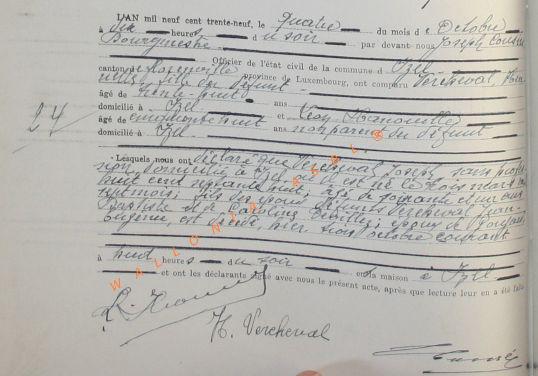 L'AN mil neuf cent trente-neuf, le quatre du mois de Octobre
à six heures du soir par devant nous Joseph
Bourgmestre
Officier de l'état civil de la commune d'Izel
canton de Florenville province de Luxembourg, ont comparu Vercheval
fils du défunt
âgé de trente-huit ans
domicilié à Izel et Léon Hanouille
âgé de cinquante huit ans non parent du défunt
domicilié à Izel
24
Lesquels nous ont déclaré que Vercheval Joseph, sans profes-
sion, domicilié à Izel, où il est né le trois mars
huit cent septante huit, âgé de soixante et un ans
sept mois, fils des époux défunts Vercheval Jean-
Baptiste et de Caroline époux de
Eugénie, est décédé, hier trois octobre courant
à huit heures du soir en sa maison à Izel
et ont les déclarants signé avec nous le présent acte, après que lecture leur en a été faite
WALLONIA ASBL ©
H. Vercheval